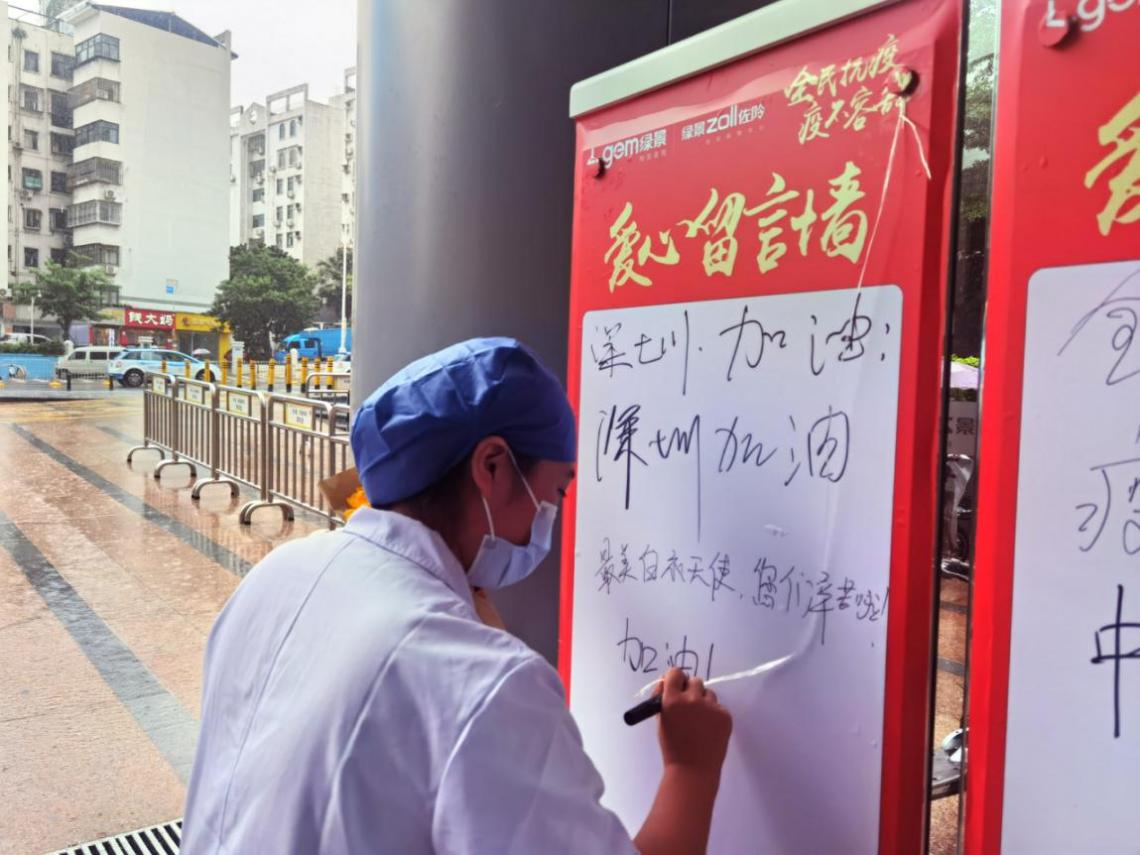 gem绿景
绿景zoll佐阾
全民抗疫
疫不容辞
爱心留言墙
深圳.加油!
深圳加油
最美白衣天使,您们辛苦啦!
加油!
钱大妈
景
go
爱
全
中